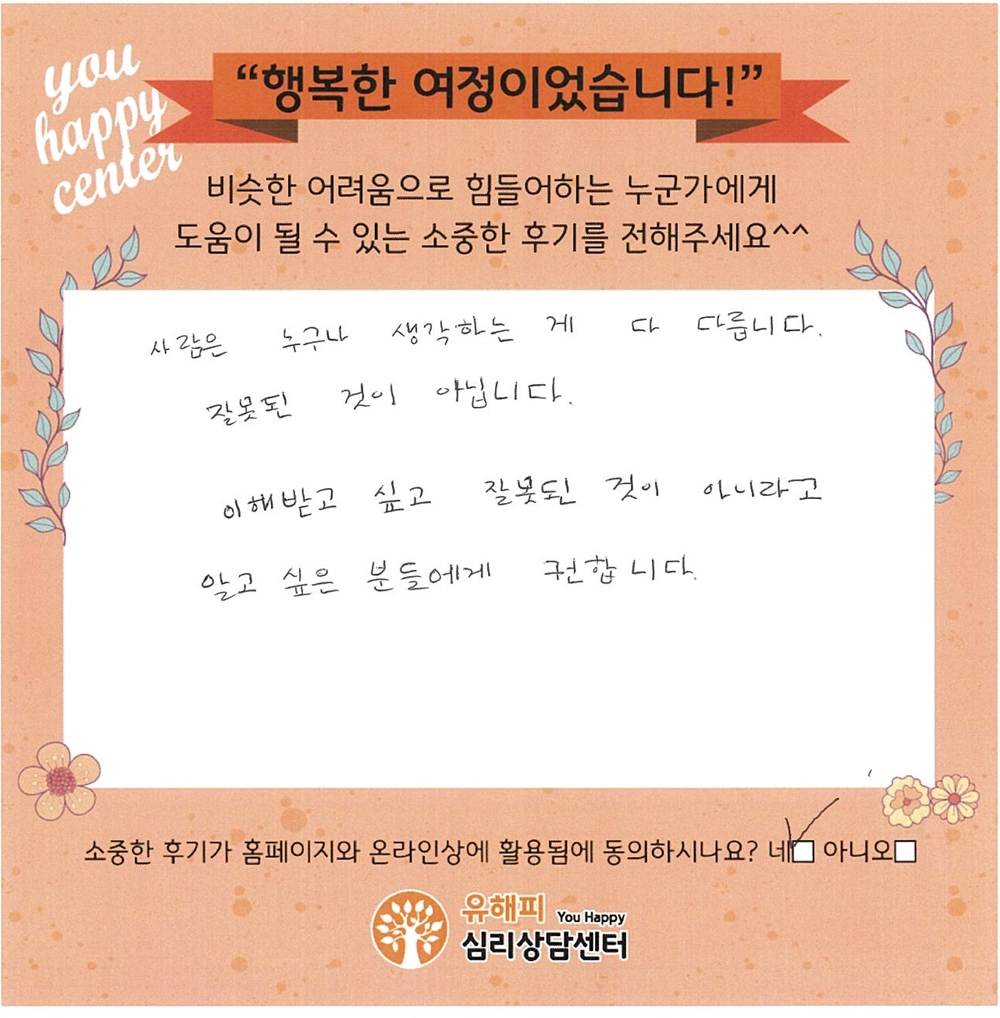 you
happy
center
“행복한 여정이었습니다!”
비슷한 어려움으로 힘들어하는 누군가에게
도움이 될 수 있는 소중한 후기를 전해주세요^^
사람은 누구나 생각하는 게 다 다릅니다.
잘못된 것이 아닙니다.
이해받고 싶고 잘못된 것이 아니라고
알고 싶은 분들에게 권합니다.
소중한 후기가 홈페이지와 온라인상에 활용됨에 동의하시나요? 네 아니오
유해피 You Happy
심리상담센터